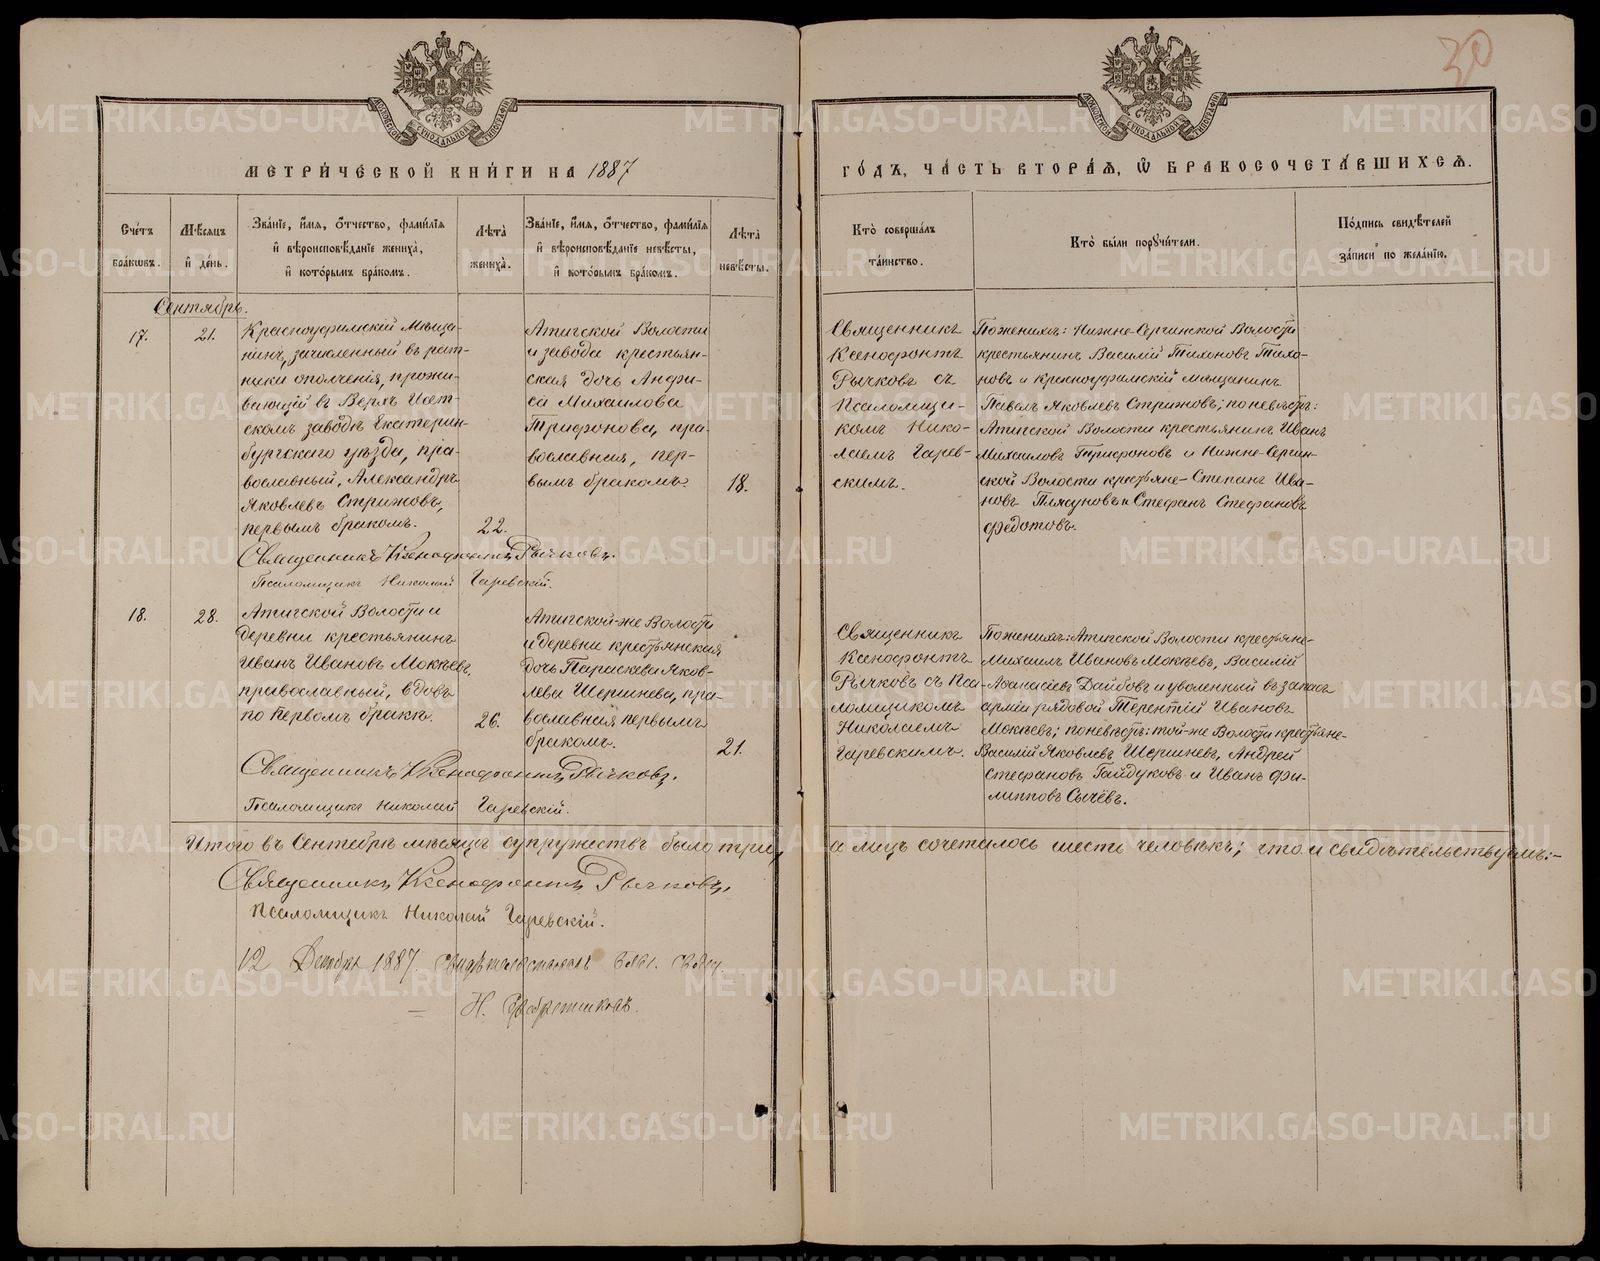 30
МЕТРИ́ЧЕСКОЙ КНИ́ГИ НА 1887
ГО́ДЪ, ЧА́СТЬ ВТОРА́Я, Ѡ БРАКОСОЧЕТА́ВШИХСЯ.
Сче́тъ бра́кѡвъ.
Мѣ́сѧцъ и́ де́нь.
Зва́нїе, и́мѧ, ѻ́тчество, фами́лїѧ и҆ вѣроисповѣ́данїе жениха̀, и҆ кото́рымъ бра́комъ.
Лѣ́та жениха̀.
Зва́нїе, и́мѧ, ѻ́тчество, фами́лїѧ и҆ вѣроисповѣ́данїе невѣ́сты, и҆ кото́рымъ бра́комъ.
Лѣ́та невѣ́сты.
Кто̀ соверша́лъ та́инство.
Кто̀ бы́ли порꙋчи́тели.
По́дпись свидѣ́телей за́писи по жела́нїю.
Сентябрь.
17.
21.
Красноуфимскій Мѣща-
нинъ, зачисленный въ рат-
ники ополченія, прожи-
вающій въ Верхъ Исет-
скомъ заводѣ Екатерин-
бургскаго уѣзда, пра-
вославный, Александръ
Яковлевъ Стрижовъ,
первымъ бракомъ.
22.
Атигской Волости
и завода крестьян-
ская дочь Анфи-
са Михаилова
Трифонова, пра-
вославная, пер-
вымъ бракомъ.
18.
Священникъ
Ксенофонтъ
Рычковъ съ
Псаломщи-
комъ Нико-
лаемъ Гарев-
скимъ.
Пожениху: Нижне-Сергинской Волости
крестьянинъ Василій Тихоновъ Тихо-
новъ и красноуфимскій мѣщанинъ
Павелъ Яковлевъ Стрижовъ; поневѣстѣ:
Атигской Волости крестьянинъ Иванъ
Михаиловъ Трифоновъ и Нижне-Сергин-
ской Волости крестьяне Степанъ Ива-
новъ Плясуновъ и Стефанъ Стефановъ
Федотовъ.
Священникъ Ксенофонтъ Рычковъ.
Псаломщикъ Николай Гаревскій.
18.
28.
Атигской Волости и
деревни крестьянинъ
Иванъ Ивановъ Мокѣевъ,
православный, вдовъ
по первомъ бракѣ.
26.
Атигской-же Волости
и деревни крестьянская
дочь Параскева Яков-
лева Шершнева, пра-
вославная первымъ
бракомъ.
21.
Священникъ
Ксенофонтъ
Рычковъ съ Пса-
ломщикомъ
Николаемъ
Гаревскимъ.
Пожениху: Атигской Волости крестьяне-
Михаилъ Ивановъ Мокѣевъ, Василій
Афанасіевъ Дайбовъ и уволенный въ запасъ
арміи рядовой Терентій Ивановъ
Мокѣевъ; поневѣстѣ: той-же Волости крестьяне-
Василій Яковлевъ Шершневъ, Андрей
Стефановъ Гайдуковъ и Иванъ Фи-
липповъ Сычёвъ.
Священникъ Ксенофонтъ Рычковъ.
Псаломщикъ Николай Гаревскій.
Итого въ Сентябрѣ мѣсяцѣ супружествъ было три, а лицъ сочеталось шесть человѣкъ; что и свидѣтельствуемъ:-
Священникъ Ксенофонтъ Рычковъ.
Псаломщикъ Николай Гаревскій.
12 Декабря 1887
Н.
METRIKI.GASO-URAL.RU